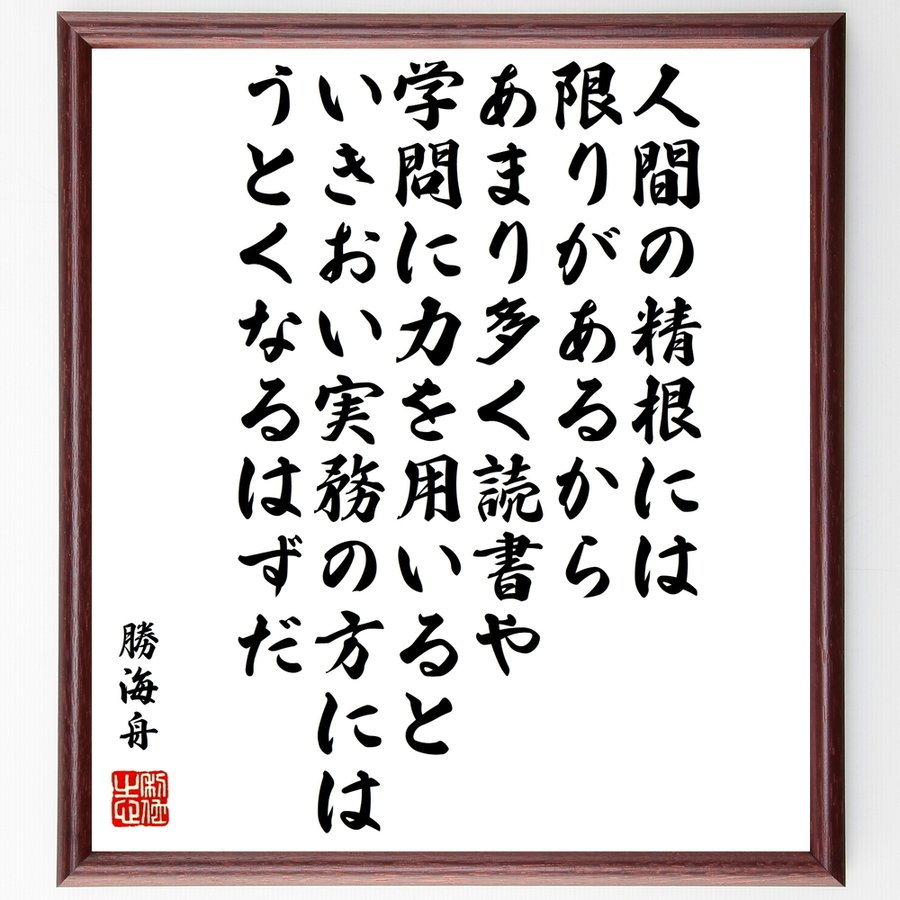 人間の精根には
限りがあるから
あまり多く読書や
学問に力を用いると
いきおい実務の方には
うとくなるはずだ
勝海舟